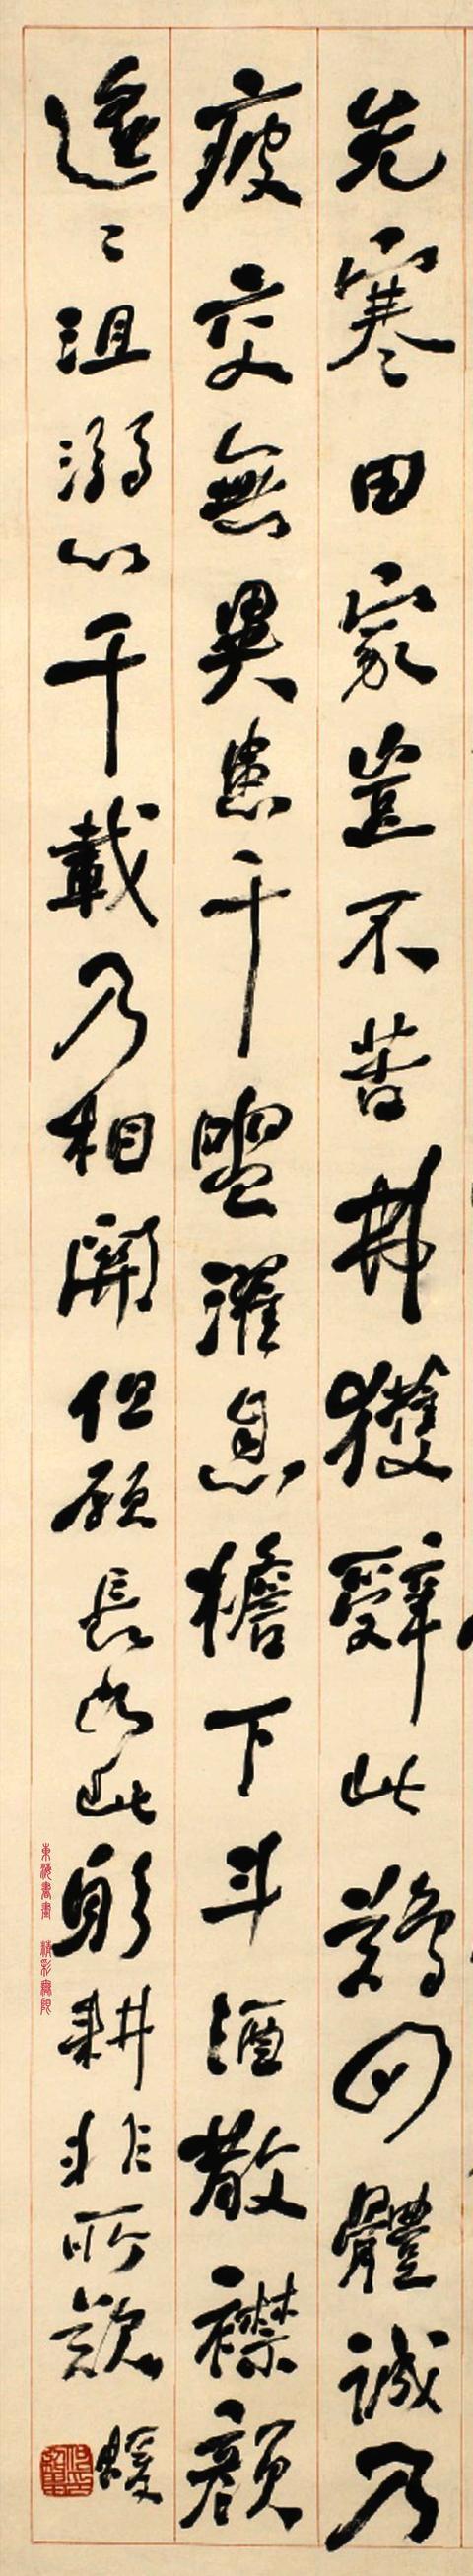 先寒田家豈不苦弗獲辭此難四體誠乃
疲交無異患干盥濯息檐下斗酒散襟顏
遙〻沮溺心千載乃相關但願長如此躬耕非所歎 蝯